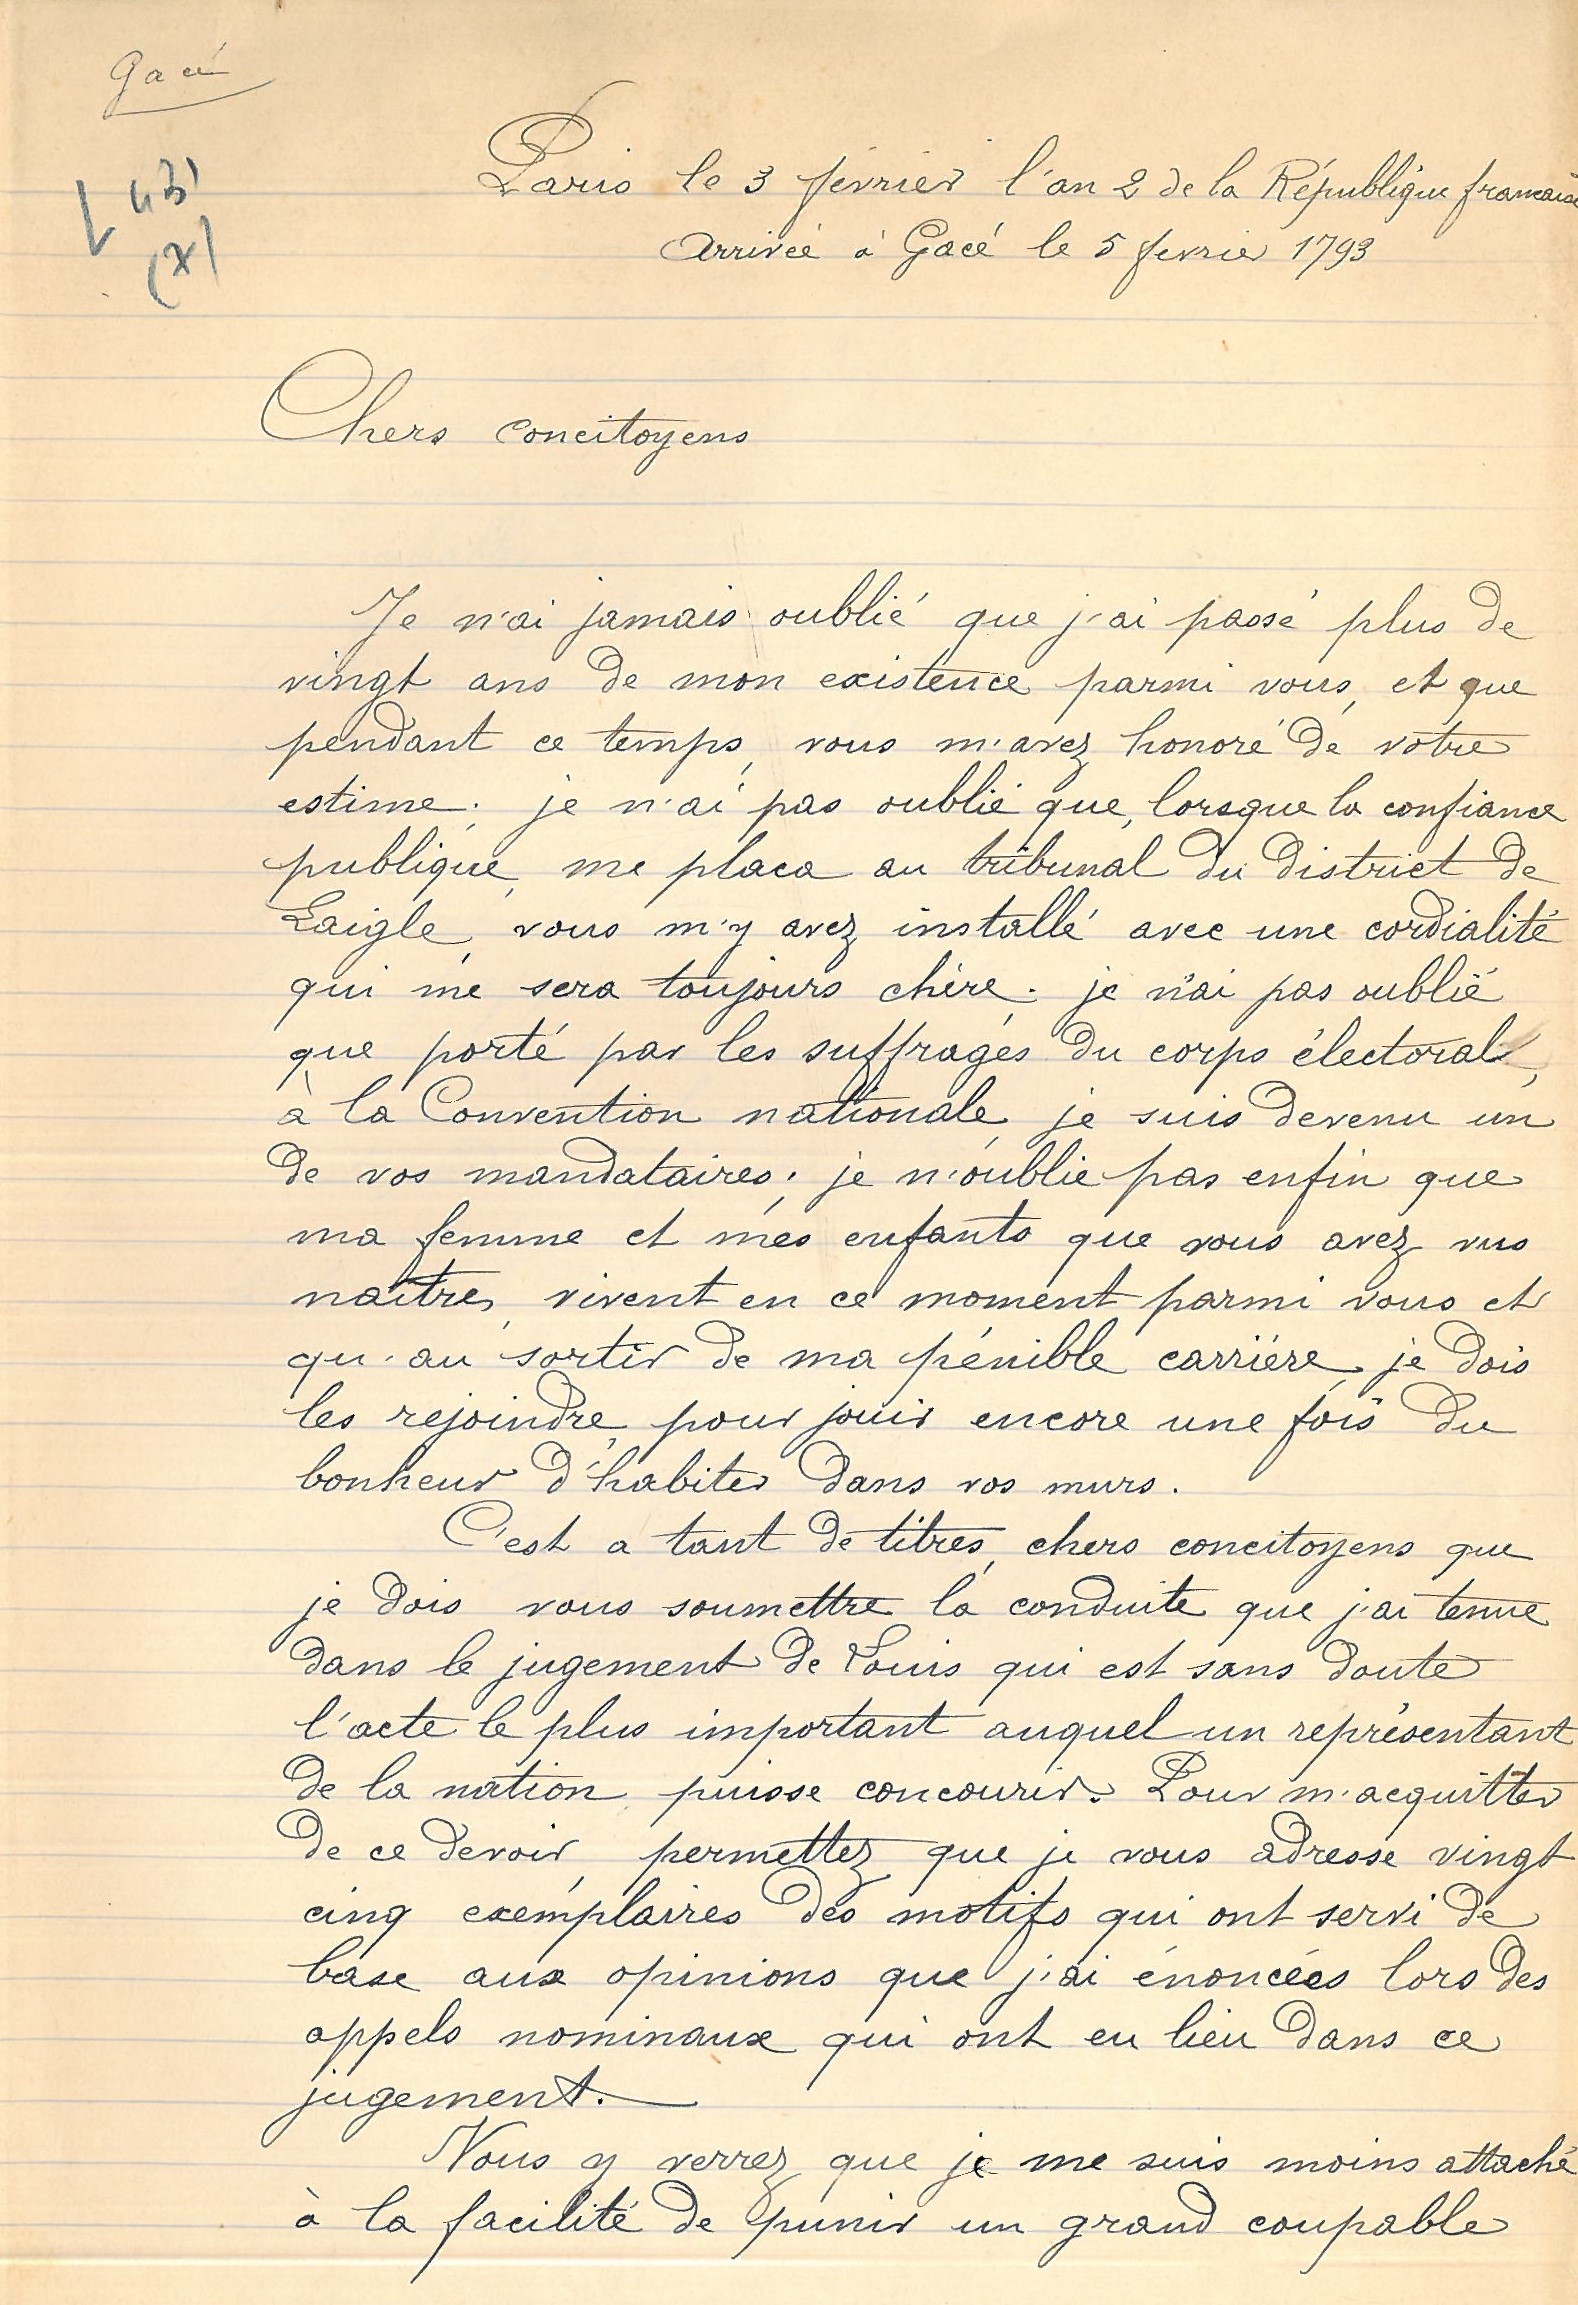 Gacé
43
(x)
Paris le 3 février l'an 2 de la République française
Arrivée à Gacé le 5 fevrier 1793
Chers concitoyens
Je n'ai jamais oublié que j'ai passé plus de
vingt ans de mon existence parmi vous, et que
pendant ce temps, vous m'avez honoré de votre
estime; je n'ai pas oublié que, lorsque la confiance
publique, me placa au tribunal du district de
Laigle, vous m'y avez installé avec une cordialité
qui me sera toujours chère; je n'ai pas oublié
que porté par les suffrages du corps électoral,
à la Convention nationale, je suis devenu un
de vos mandataires; je n'oublie pas enfin que
ma femme et mes enfants que vous avez vus
naître, vivent en ce moment parmi vous et
qu'au sortir de ma pénible carrière, je dois
les rejoindre, pour jouir encore une fois du
bonheur d'habiter dans vos murs.
C'est a tant de titres, chers concitoyens que
je dois vous soumettre la conduite que j'ai tenue
dans le jugement de Louis qui est sans doute
l'acte le plus important auquel un représentant
de la nation puisse concourir. Pour m'acquitter
de ce devoir, permettez que je vous adresse vingt
cinq exemplaires des motifs qui ont servi de
base aux opinions que j'ai énoncées lors des
appels nominaux qui ont eu lieu dans ce
jugement.
Vous y verrez que je me suis moins attaché
à la facilité de punir un grand coupable